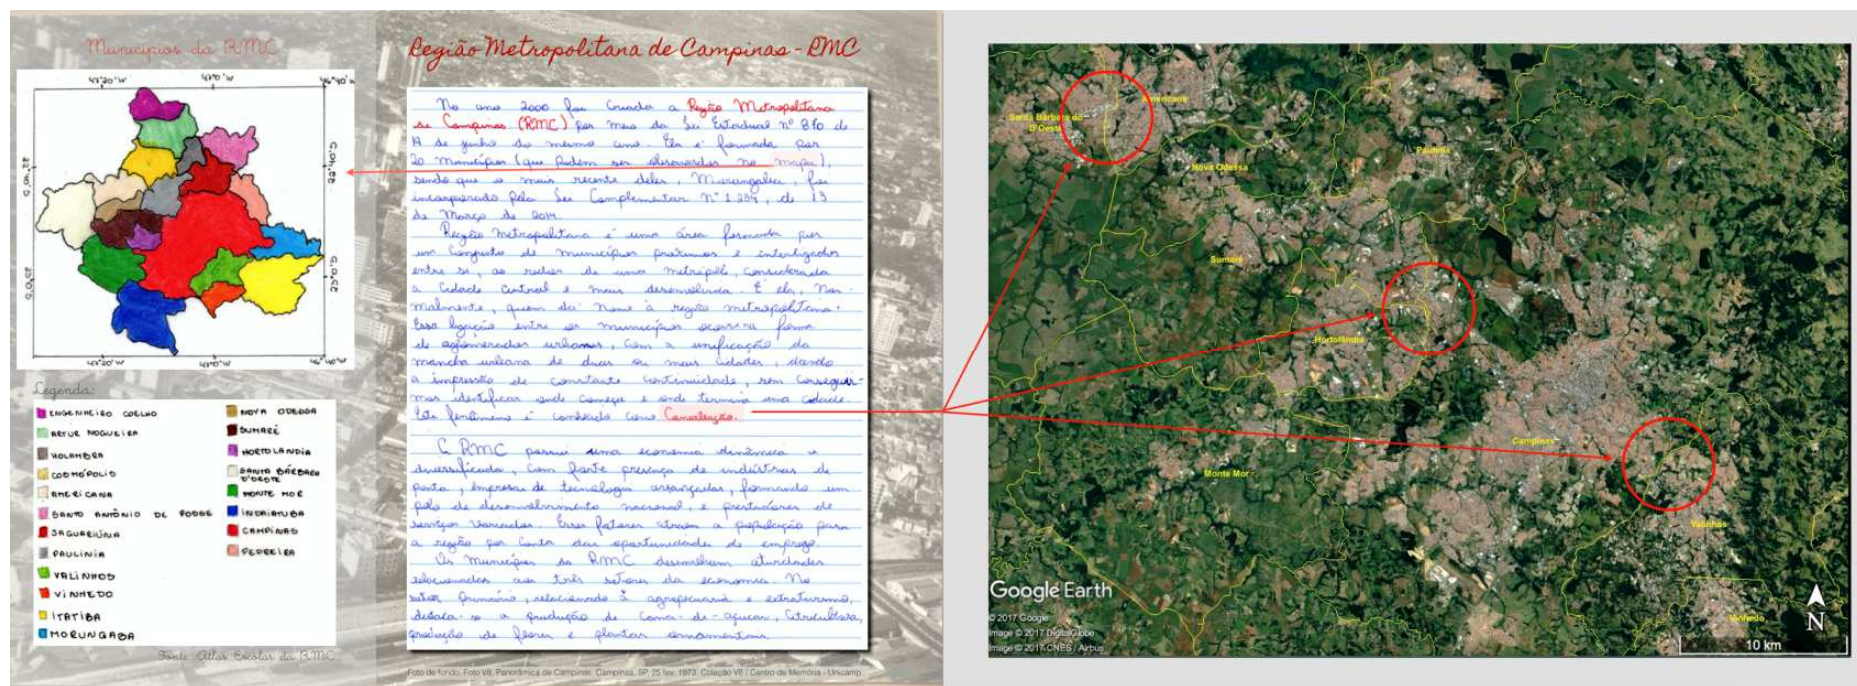 Municípios da RMC
47°20'W
47°0'W
46°40'W
22°40'S
22°40'S
23°0'S
23°0'S
47°20'W
47°0'W
46°40'W
Legenda:
ENGENHEIRO COELHO
ARTUR NOGUEIRA
HOLAMBRA
COSMÓPOLIS
AMERICANA
SANTO ANTÔNIO DE POSSE
JAGUARIÚNA
PAULÍNIA
VALINHOS
VINHEDO
ITATIBA
MORUNGABA
NOVA ODESSA
SUMARÉ
HORTOLANDIA
SANTA BÁRBARA
D'OESTE
MONTE MOR
INDAIATUBA
CAMPINAS
PEDREIRA
Fonte: Atlas Escolar da RMC
Região Metropolitana de Campinas - RMC
No ano 2000 foi criada a Região Metropolitana
de Campinas (RMC) por meio da Lei Estadual nº 870 de
19 de junho do mesmo ano. Ela é formada por
20 municípios (que podem ser observados no mapa),
sendo que o mais recente deles, Morungaba, foi
incorporado pela Lei Complementar Nº 1234, de 13
de Março de 2014.
Região Metropolitana é uma área formada por
um conjunto de municípios próximos e interligados
entre si, ao redor de uma metrópole, considerada
a cidade central e mais desenvolvida. É ela, nor-
malmente, quem dá nome à região metropolitana.
Essa ligação entre os municípios ocorre na forma
de aglomerados urbanos, com a unificação da
mancha urbana de duas ou mais cidades, dando
a impressão de constante continuidade, sem consegui-
mos identificar onde começa e onde termina uma cidade.
Este fenômeno é conhecido como Conurbação.
A RMC possui uma economia dinâmica e
diversificada, com forte presença de indústrias de
ponta, empresas de tecnologia avançadas, formando um
polo de desenvolvimento nacional, e prestadores de
serviços variados. Esses fatores atraem a população para
a região por conta das oportunidades de emprego.
Os municípios da RMC desenvolvem atividades
relacionadas aos três setores da economia. No
setor primário, relacionado à agropecuária e extrativismo,
destaca-se a produção de cana-de-açúcar, citricultura,
produção de flores e plantas ornamentais.
Foto de fundo: Foto V8. Panorâmica de Campinas. Campinas, SP, 25 fev. 1973. Coleção V8 / Centro de Memória - Unicamp
Americana
Santa Bárbara do
D'Oeste
Nova Odessa
Paulínia
Sumaré
Hortolândia
Campinas
Monte Mor
Valinhos
Vinhedo
Google Earth
© 2017 Google
Image © 2017 DigitalGlobe
Image © 2017 CNES / Airbus
N
10 km